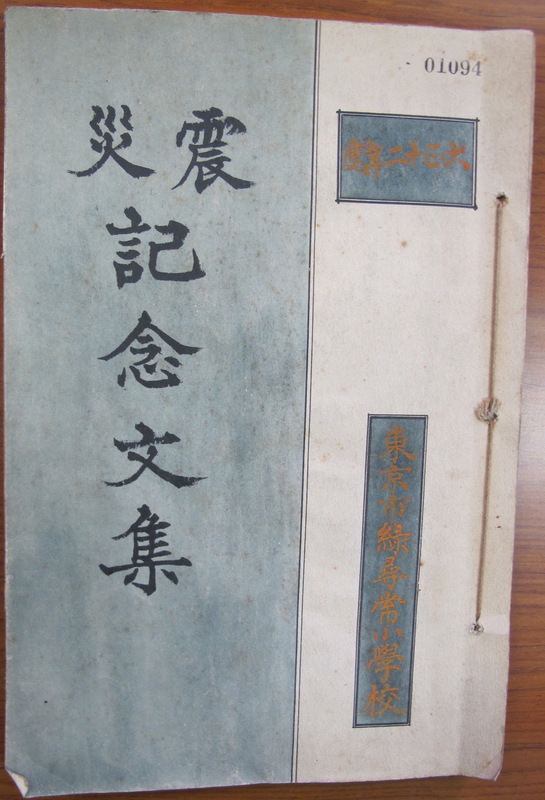 01094
震災
記念文集
東京市緑尋常小學校